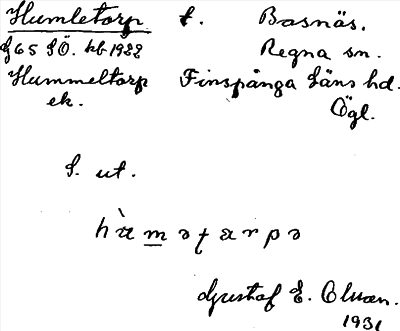 Humletorp t. Basnäs.
G 65 SÖ. hb 1922 Regna sn.
Hummeltorp Finspånga Läns hd.
ek. Ögl.
S. ut.
Gustaf E. Olsson.
1931